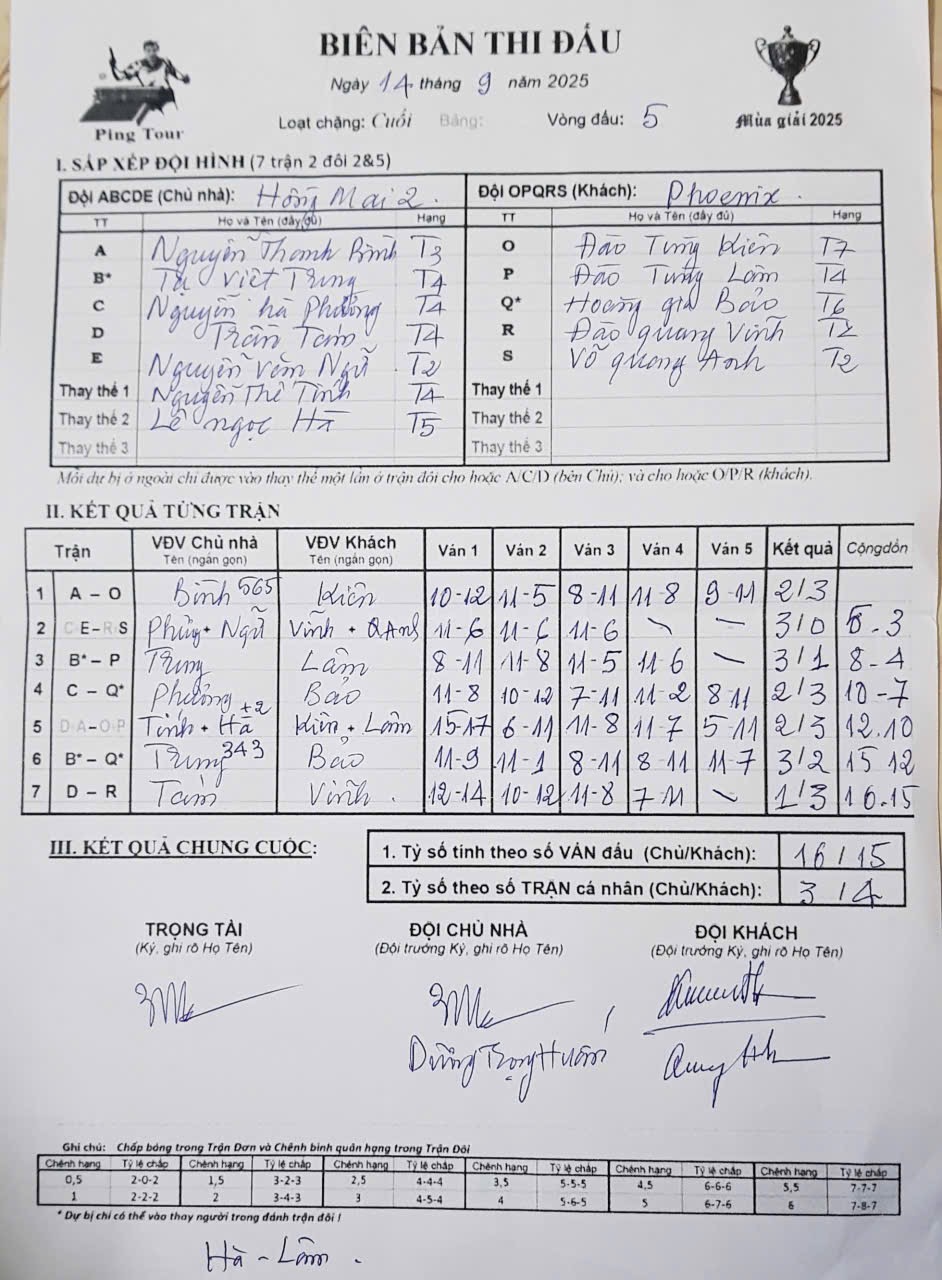 BIÊN BẢN THI ĐẤU
Ngày 14 tháng 9 năm 2025
Ping Tour
Loạt chặng: Cuối Bảng: Vòng đấu: 5
Mùa giải 2025
I. SẮP XẾP ĐỘI HÌNH (7 trận 2 đôi 2&5)
Đội ABCDE (Chủ nhà): Hồng Mai 2. Đội OPQRS (Khách): Phoenix.
TT Họ và Tên (đầy đủ) Hạng TT Họ và Tên (đầy đủ) Hạng
A Nguyễn Thanh Bình T3 O Đào Tùng Kiên T7
B* Tạ Việt Trung T4 P Đào Tùng Lâm T4
C Nguyễn hà Phương T4 Q* Hoàng gia Bảo T6
D Trần Tám T4 R Đào quang Vinh T2
E Nguyễn văn Ngữ T2 S Võ quang Anh T2
Thay thế 1 Nguyễn Thế Tính T4 Thay thế 1
Thay thế 2 Lê ngọc Hà T5 Thay thế 2
Thay thế 3 Thay thế 3
Mỗi dự bị ở ngoài chỉ được vào thay thế một lần ở trận đôi cho hoặc A/C/D (bên Chủ); và cho hoặc O/P/R (khách).
II. KẾT QUẢ TỪNG TRẬN
Trận VĐV Chủ nhà VĐV Khách Ván 1 Ván 2 Ván 3 Ván 4 Ván 5 Kết quả Cộng dồn
Tên (ngắn gọn) Tên (ngắn gọn)
1 A – O Bình 565 Kiên 10-12 11-5 8-11 11-8 9-11 2/3
2 C E – R S + Ngữ Vinh + QAnh 11-6 11-6 11-6 – – 3/0 5-3
3 B* – P Trung Lâm 8-11 11-8 11-5 11-6 – 3/1 8-4
4 C – Q* Phương +2 Bảo 11-8 10-12 7-11 11-2 8-11 2/3 10-7
5 D A – O P Tính + Hà Kiên + Lâm 15-17 6-11 11-8 11-7 5-11 2/3 12.10
6 B* – Q* Trung 343 Bảo 11-9 11-1 8-11 8-11 11-7 3/2 15 12
7 D – R Tám Vinh. 12-14 10-12 11-8 7-11 – 1/3 16.15
III. KẾT QUẢ CHUNG CUỘC:
1. Tỷ số tính theo số VÁN đấu (Chủ/Khách): 16/15
2. Tỷ số theo số TRẬN cá nhân (Chủ/Khách): 3/4
TRỌNG TÀI ĐỘI CHỦ NHÀ ĐỘI KHÁCH
(Ký, ghi rõ Họ Tên) (Đội trưởng Ký, ghi rõ Họ Tên) (Đội trưởng Ký, ghi rõ Họ Tên)
Trọng Huấn
Ghi chú: Chấp bóng trong Trận Đơn và Chênh bình quân hạng trong Trận Đôi
Chênh hạng Tỷ lệ chấp Chênh hạng Tỷ lệ chấp Chênh hạng Tỷ lệ chấp Chênh hạng Tỷ lệ chấp Chênh hạng Tỷ lệ chấp Chênh hạng Tỷ lệ chấp
0,5 2-0-2 1,5 3-2-3 2,5 4-4-4 3,5 5-5-5 4,5 6-6-6 5,5 7-7-7
1 2-2-2 2 3-4-3 3 4-5-4 4 5-6-5 5 6-7-6 6 7-8-7
* Dự bị chỉ có thể vào thay người trong đánh trận đôi !
Hà - Lâm.